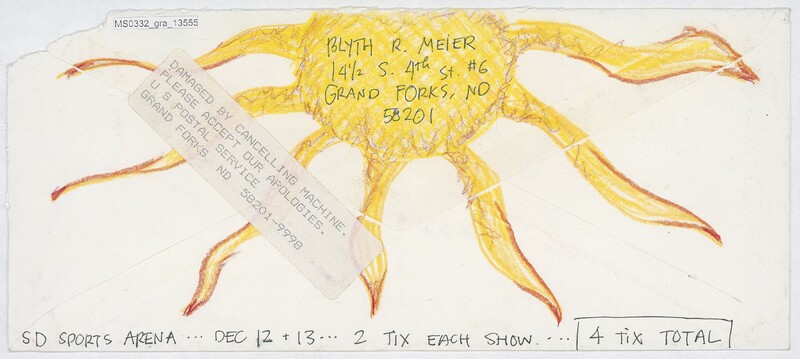 MS0332_gra_13555
BLYTH R. MEIER
14½ S. 4th St. #6
GRAND FORKS, ND
58201
DAMAGED BY CANCELLING MACHINE.
PLEASE ACCEPT OUR APOLOGIES.
U S POSTAL SERVICE
GRAND FORKS ND 58201-9998
SD SPORTS ARENA ... DEC 12 + 13 ... 2 TIX EACH SHOW .... 4 TIX TOTAL